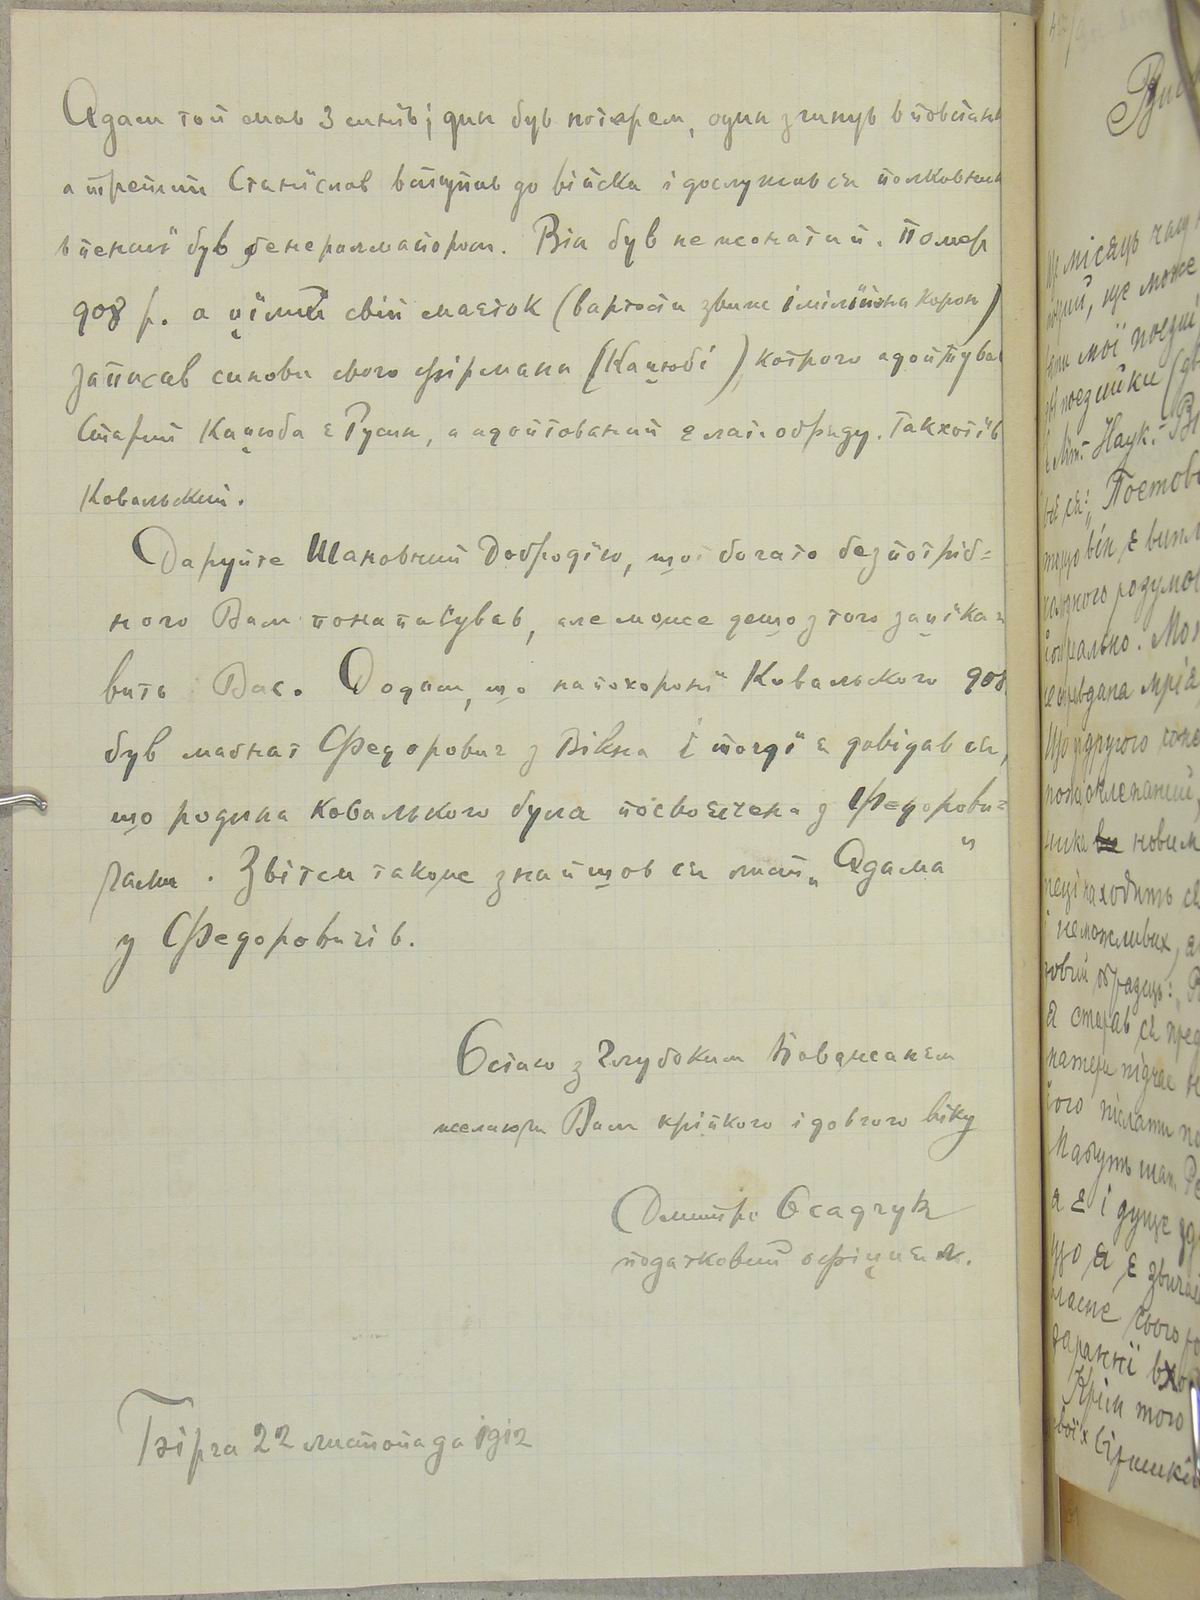 Адам той мав 3 синів; один був поттерем, один згинув в повстанн
а третий Станіслав вступив до війска і дослужив ся полковник
в пенсиї був ґенералмайором. Він був не жонатий. Помер
908 р. а цілий свій маєток (вартости звиж 1 міліона корон)
записав синови свого фірмана (Кацюбі), котрого адоптував
Старий Кацюба є Русин, а адоптований є лат. обряду. Так хотїв
Ковальский.
Даруйте Шановний Добродїю, що богато безпотріб=
ного Вам понаписував, але може дещо з того зацїка=
вить Вас. Додам, що на похоронї Ковальского 908
був маґнат Федорович з Вікна і тогдї я довідав ся,
що родина Ковальского була посвоячена з Федорови=
чами. Звітси також знайшов ся лист „Адама"
у Федоровичів.
Остаю з глубоким поважанєм
желаючи Вам кріпкого і довгого віку
Дмитро Осадчук
податковий офіциял.
22 листопада 1912
ще місяць
мої поезиї
Наук.
Постова
він є
Мої
мрія
що другого
новим
находить ся
і неможливих,
образець:
Я старав ся
його писати
а є і дуже
що я є
свого
Крім того
своїх віршиків